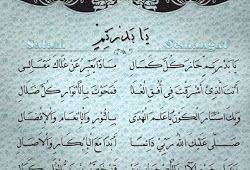 يَا بَدْرَتِمٍّ
يَا بَدْرَتِمٍّ حَازَ كُلَّ كَمَالِ مَاذَا يُعَبِّرُ عَنْ عُلَاكَ مَقَالِي
أَنْتَ الَّذِي أَشْرَقْتَ فِي أُفُقِ الْعُلَا فَمَحَوْتَ بِالْأَنْوَارِ كُلَّ ضَلَالِ
وَبِكَ اسْتَنَارَ الْكَوْنُ يَا عَلَمَ الْهُدَى بِالنُّورِ وَالْإِنْعَامِ وَالْإِفْضَالِ
صَلَّى عَلَيْكَ اللهُ رَبِّي دَائِمًا أَبَدًا مَعَ الْإِبْكَارِ وَالْآصَالِ